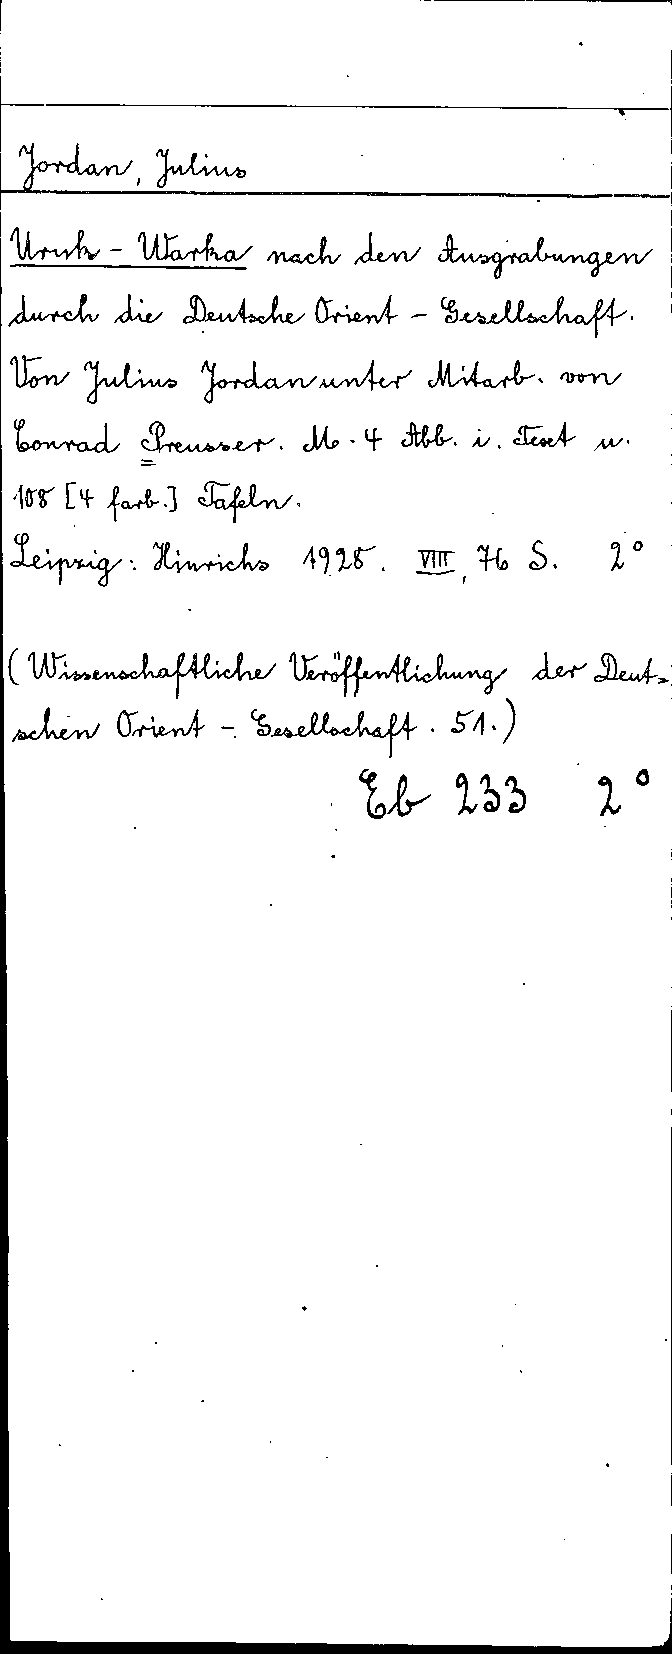 Jordan, Julius
Uruk - Warka nach den Ausgrabungen
durch die Deutsche Orient - Gesellschaft.
Von Julius Jordan unter Mitarb. von
Conrad Preusser. M. 4 Abb. i. Text u.
108 [4 farb.] Tafeln.
Leipzig: Hinrichs 1928. VIII, 76 S. 2°
(Wissenschaftliche Veröffentlichung der Deut-
schen Orient - Gesellschaft. 51.)
Eb 233 2°